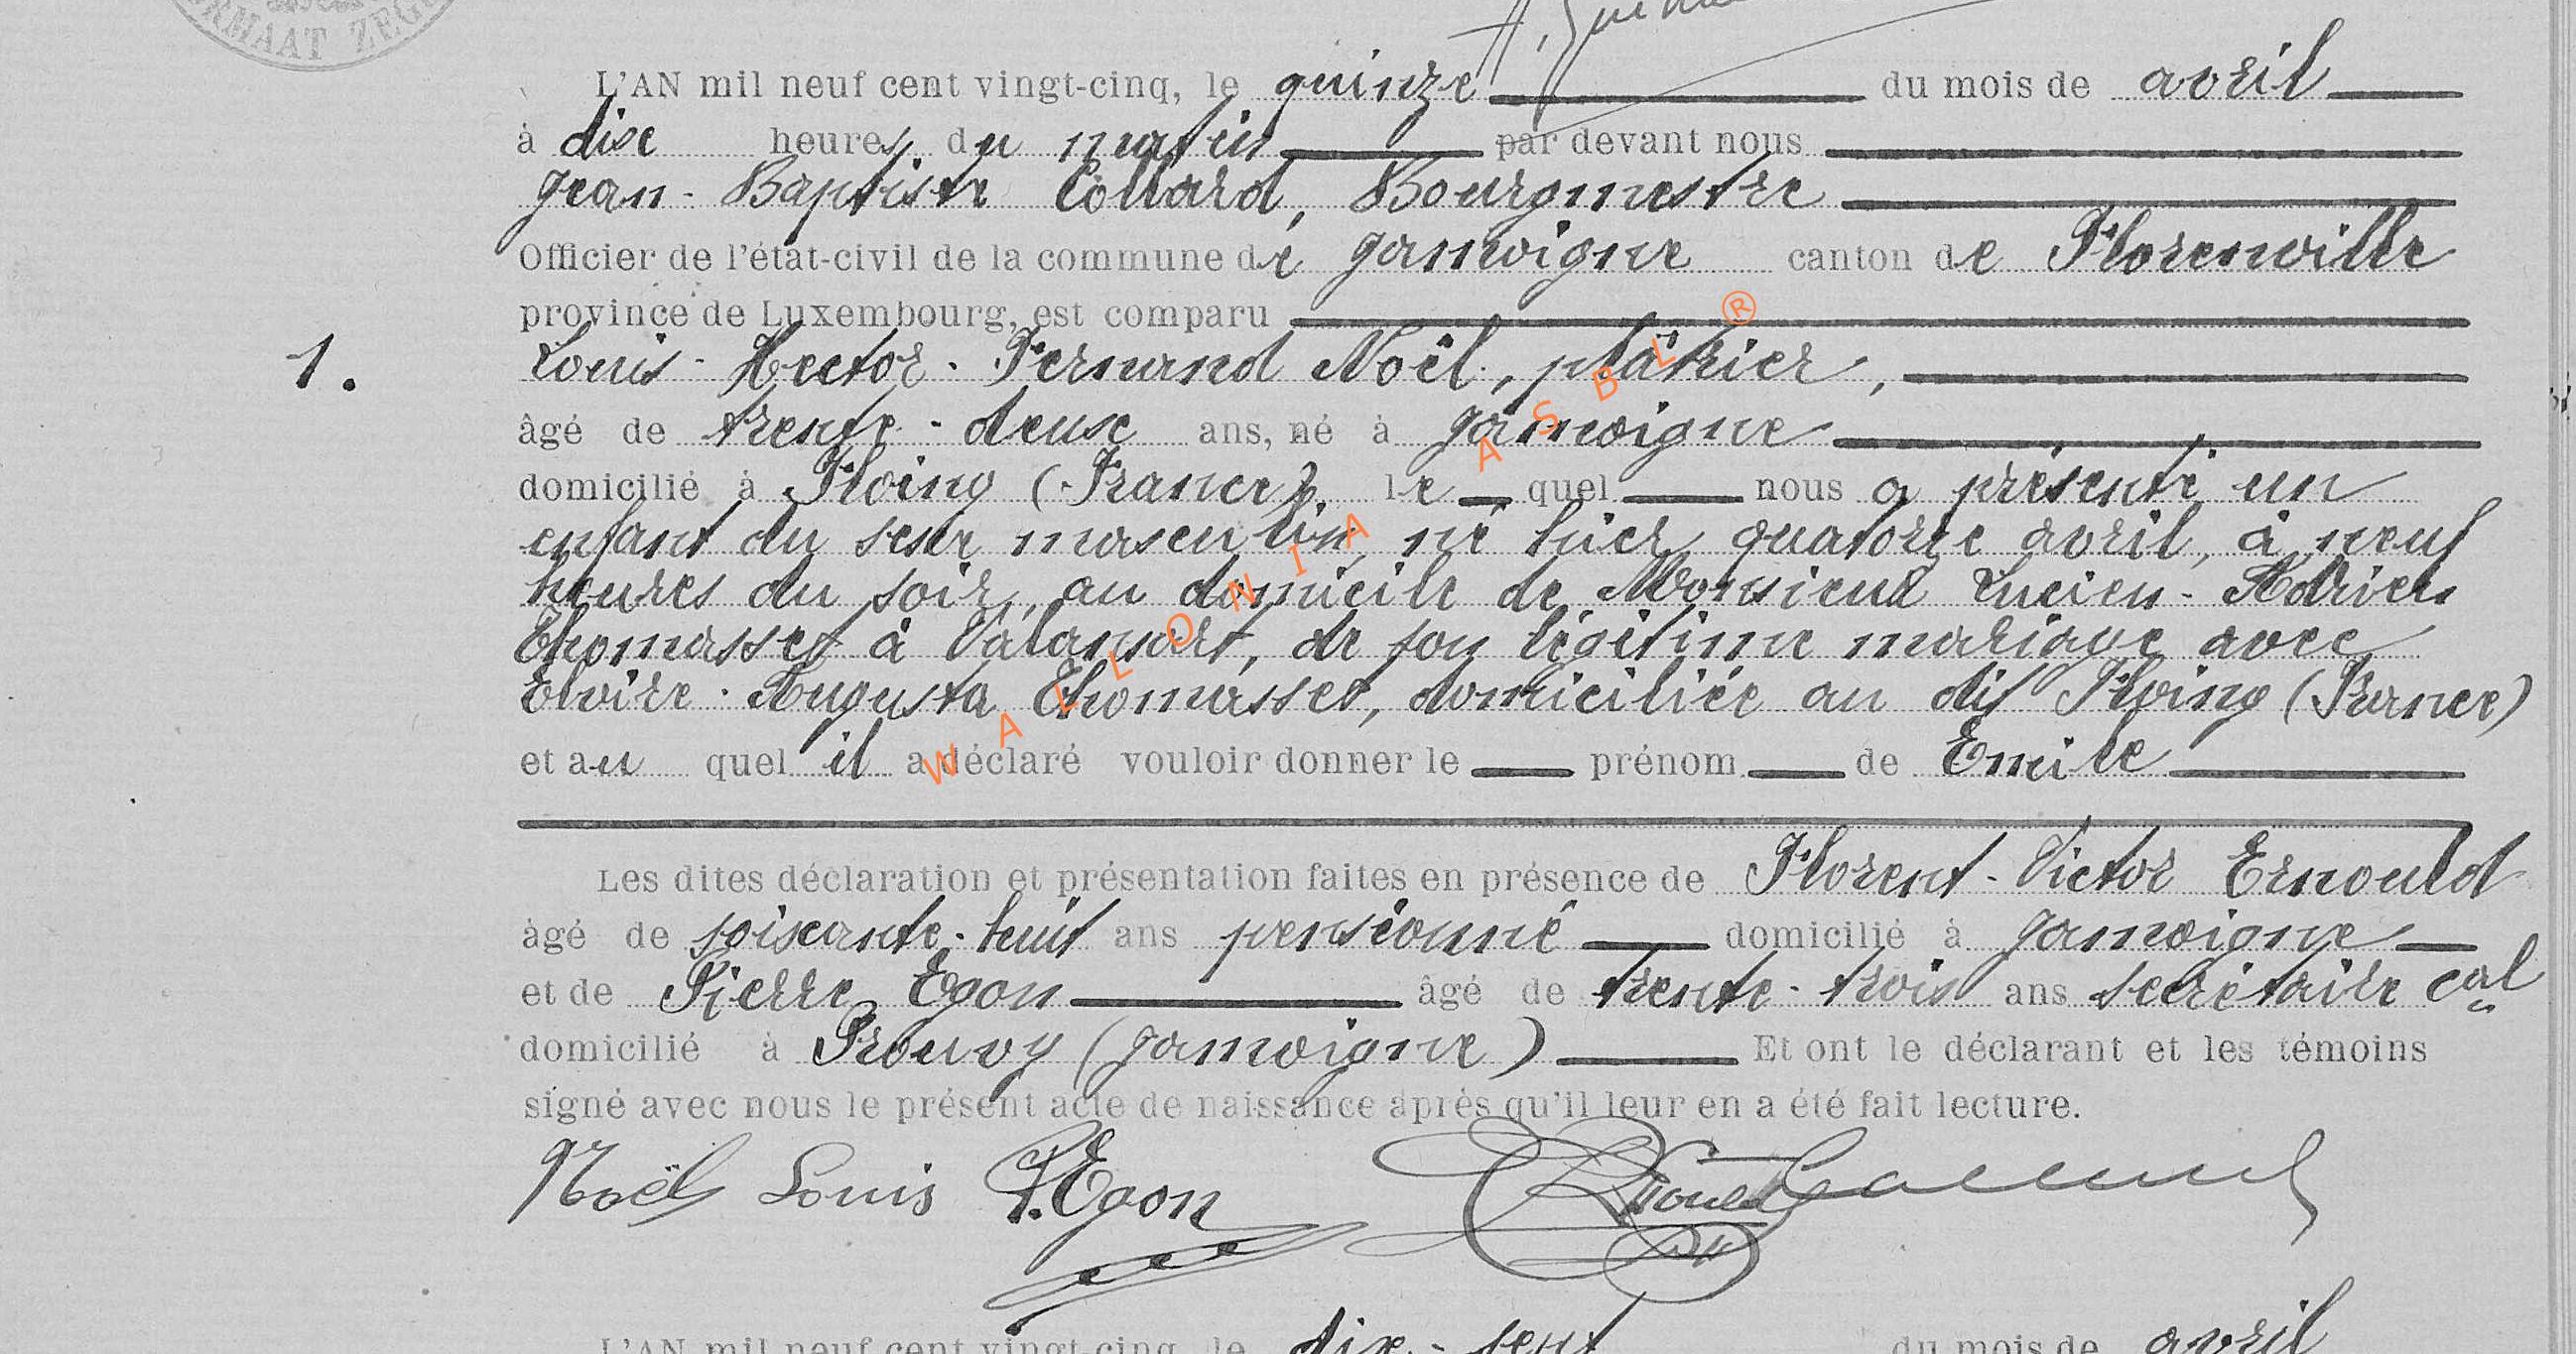 RMAAT ZEG
L'AN mil neuf cent vingt-cinq, le quinze du mois de avril
à dix heures du matin par devant nous
Jean-Baptiste Collard, Bourgmestre
Officier de l'état-civil de la commune de Jamoigne canton de Florenville
province de Luxembourg, est comparu
1. Louis-Hector-Fernand Noël, plâtrier,
âgé de trente-deux ans, né à Jamoigne
domicilié à Floing (France), le quel nous a présenté un
enfant du sexe masculin, né hier, quatorze avril, à neuf
heures du soir, au domicile de Monsieur Lucien-Adrien
Thomasset à Valansart, de son légitime mariage avec
Elvire-Augusta Thomasset, domiciliée au dit Floing (France)
et au quel il a déclaré vouloir donner le prénom de Emile
Les dites déclaration et présentation faites en présence de Florent-Victor Ernould
âgé de soixante-huit ans pensionné domicilié à Jamoigne
et de Pierre Egon âgé de trente-trois ans secrétaire cal
domicilié à Prouvy (Jamoigne) Et ont le déclarant et les témoins
signé avec nous le présent acte de naissance après qu'il leur en a été fait lecture.
Noël Louis P. Egon
L'AN mil neuf cent vingt-cinq, le dix-sept du mois de avril
WALLONIA ASBL ®